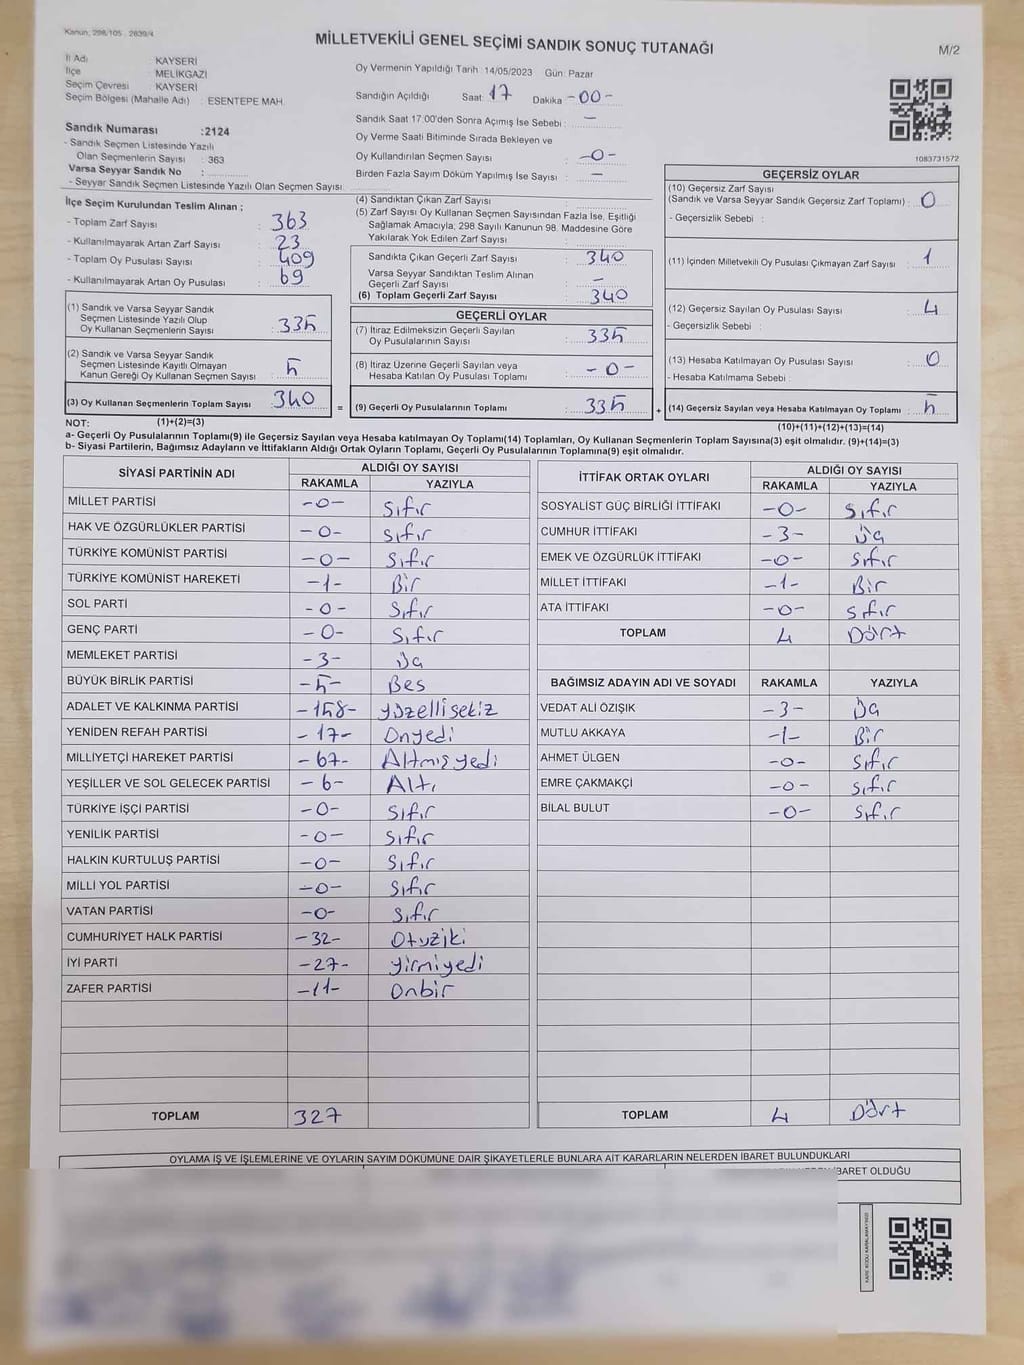 Kanun, 298/105 . 2839/4
MİLLETVEKİLİ GENEL SEÇİMİ SANDIK SONUÇ TUTANAĞI
M/2
İl Adı KAYSERİ
İlçe MELİKGAZİ
Seçim Çevresi : KAYSERİ
Seçim Bölgesi (Mahalle Adı) : ESENTEPE MAH.
Oy Vermenin Yapıldığı Tarih 14/05/2023 Gün: Pazar
Sandığın Açıldığı Saat: 17 Dakika -00-
Sandık Saat 17.00'den Sonra Açımış İse Sebebi : -
Oy Verme Saati Bitiminde Sırada Bekleyen ve
Oy Kullandırılan Seçmen Sayısı : -0-
Birden Fazla Sayım Döküm Yapılmış İse Sayısı : -
1083731572
Sandık Numarası :2124
- Sandık Seçmen Listesinde Yazılı
Olan Seçmenlerin Sayısı : 363
Varsa Seyyar Sandık No :
- Seyyar Sandık Seçmen Listesinde Yazılı Olan Seçmen Sayısı
İlçe Seçim Kurulundan Teslim Alınan ;
- Toplam Zarf Sayısı : 363
- Kullanılmayarak Artan Zarf Sayısı : 23
- Toplam Oy Pusulası Sayısı : 409
- Kullanılmayarak Artan Oy Pusulası : 69
(1) Sandık ve Varsa Seyyar Sandık
Seçmen Listesinde Yazılı Olup
Oy Kullanan Seçmenlerin Sayısı : 335
(2) Sandık ve Varsa Seyyar Sandık
Seçmen Listesinde Kayıtlı Olmayan
Kanun Gereği Oy Kullanan Seçmen Sayısı : 5
(3) Oy Kullanan Seçmenlerin Toplam Sayısı : 340
(4) Sandıktan Çıkan Zarf Sayısı :
(5) Zarf Sayısı Oy Kullanan Seçmen Sayısından Fazla İse, Eşitliği
Sağlamak Amacıyla; 298 Sayılı Kanunun 98. Maddesine Göre
Yakılarak Yok Edilen Zarf Sayısı :
Sandıkta Çıkan Geçerli Zarf Sayısı : 340
Varsa Seyyar Sandıktan Teslim Alınan
Geçerli Zarf Sayısı : -
(6) Toplam Geçerli Zarf Sayısı : 340
GEÇERLİ OYLAR
(7) İtiraz Edilmeksizin Geçerli Sayılan
Oy Pusulalarının Sayısı : 335
(8) İtiraz Üzerine Geçerli Sayılan veya
Hesaba Katılan Oy Pusulası Toplamı : -0-
= (9) Geçerli Oy Pusulalarının Toplamı : 335 +
GEÇERSİZ OYLAR
(10) Geçersiz Zarf Sayısı
(Sandık ve Varsa Seyyar Sandık Geçersiz Zarf Toplamı) : 0
- Geçersizlik Sebebi :
(11) İçinden Milletvekili Oy Pusulası Çıkmayan Zarf Sayısı : 1
(12) Geçersiz Sayılan Oy Pusulası Sayısı : 4
- Geçersizlik Sebebi :
(13) Hesaba Katılmayan Oy Pusulası Sayısı : 0
- Hesaba Katılmama Sebebi :
(14) Geçersiz Sayılan veya Hesaba Katılmayan Oy Toplamı : 5
NOT: (1)+(2)=(3)
(10)+(11)+(12)+(13)=(14)
a- Geçerli Oy Pusulalarının Toplamı(9) ile Geçersiz Sayılan veya Hesaba katılmayan Oy Toplamı(14) Toplamları, Oy Kullanan Seçmenlerin Toplam Sayısına(3) eşit olmalıdır. (9)+(14)=(3)
b- Siyasi Partilerin, Bağımsız Adayların ve İttifakların Aldığı Ortak Oyların Toplamı, Geçerli Oy Pusulalarının Toplamına(9) eşit olmalıdır.
SİYASİ PARTİNİN ADI ALDIĞI OY SAYISI
RAKAMLA YAZIYLA
MİLLET PARTİSİ -0- Sıfır
HAK VE ÖZGÜRLÜKLER PARTİSİ -0- Sıfır
TÜRKİYE KOMÜNİST PARTİSİ -0- Sıfır
TÜRKİYE KOMÜNİST HAREKETİ -1- Bir
SOL PARTİ -0- Sıfır
GENÇ PARTİ -0- Sıfır
MEMLEKET PARTİSİ -3- Üç
BÜYÜK BİRLİK PARTİSİ -5- Beş
ADALET VE KALKINMA PARTİSİ -158- yüzellisekiz
YENİDEN REFAH PARTİSİ -17- Onyedi
MİLLİYETÇİ HAREKET PARTİSİ -67- Altmışyedi
YEŞİLLER VE SOL GELECEK PARTİSİ -6- Altı
TÜRKİYE İŞÇİ PARTİSİ -0- Sıfır
YENİLİK PARTİSİ -0- Sıfır
HALKIN KURTULUŞ PARTİSİ -0- Sıfır
MİLLİ YOL PARTİSİ -0- Sıfır
VATAN PARTİSİ -0- Sıfır
CUMHURİYET HALK PARTİSİ -32- Otuziki
İYİ PARTİ -27- yirmiyedi
ZAFER PARTİSİ -11- Onbir
TOPLAM 327
İTTİFAK ORTAK OYLARI ALDIĞI OY SAYISI
RAKAMLA YAZIYLA
SOSYALİST GÜÇ BİRLİĞİ İTTİFAKI -0- Sıfır
CUMHUR İTTİFAKI -3- Üç
EMEK VE ÖZGÜRLÜK İTTİFAKI -0- Sıfır
MİLLET İTTİFAKI -1- Bir
ATA İTTİFAKI -0- Sıfır
TOPLAM 4 Dört
BAĞIMSIZ ADAYIN ADI VE SOYADI RAKAMLA YAZIYLA
VEDAT ALİ ÖZIŞIK -3- Üç
MUTLU AKKAYA -1- Bir
AHMET ÜLGEN -0- Sıfır
EMRE ÇAKMAKÇİ -0- Sıfır
BİLAL BULUT -0- Sıfır
TOPLAM 4 Dört
OYLAMA İŞ VE İŞLEMLERİNE VE OYLARIN SAYIM DÖKÜMÜNE DAİR ŞİKAYETLERLE BUNLARA AİT KARARLARIN NELERDEN İBARET BULUNDUKLARI
İBARET OLDUĞU